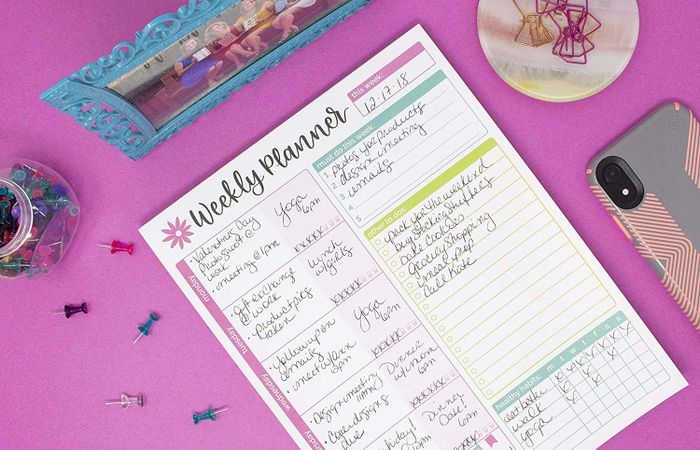 Weekly Planner
this week:
12-17-18
must do this week:
1. photos for products
2. design meeting
3. emails
4
5
other to dos:
pack for the weekend
buy stocking stuffers
bake cookies
grocery shopping
meal prep
call Kate
monday
• Valentines Day
photoshoot @
work
• meeting @ 1pm
Yoga
6pm
tuesday
• gift exchange
@ work
• Product pics
taken
Lunch
w/girls
wednesday
• follow up on
emails
Yoga
6pm
• Design meeting
• Cover designs
due
Dinner
Dinner
Date!
6pm
healthy habits:
m t w t f s s
eat better
walk
yoga